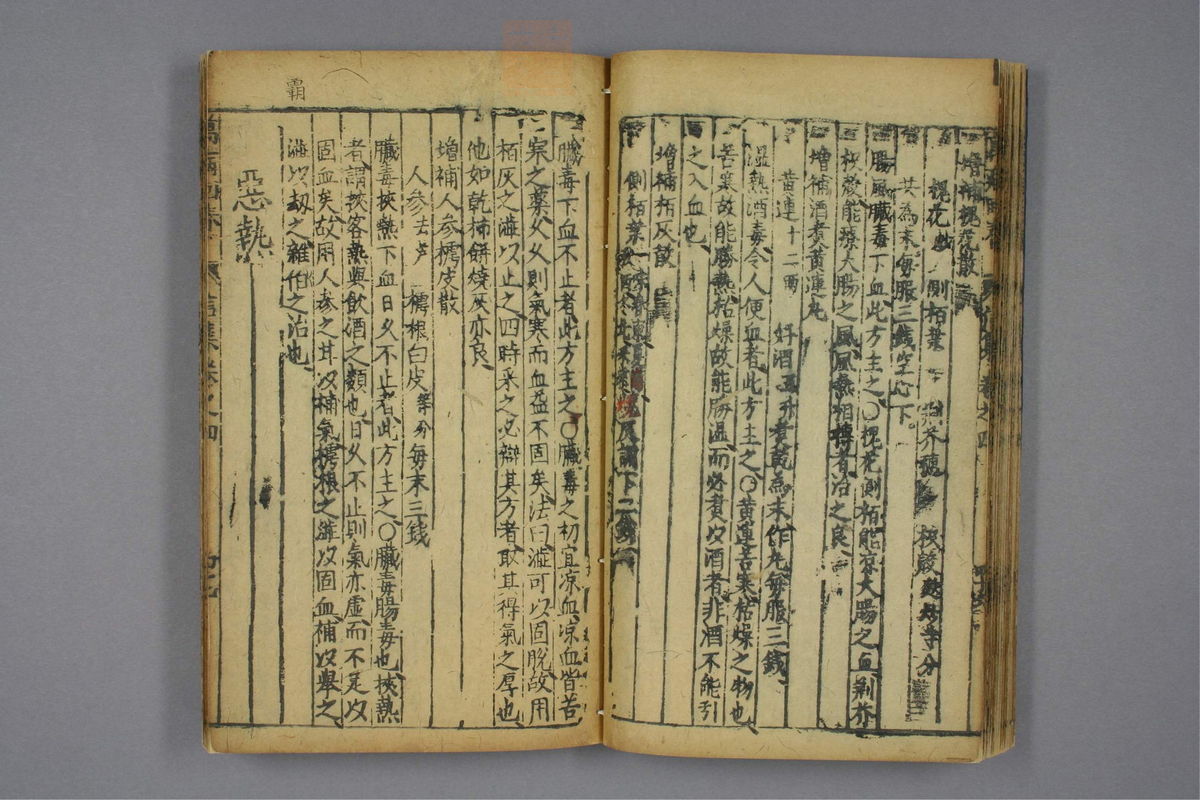 增補槐花散
槐花炒 側栢葉 荆芥穗 枳殼麩炒等分
共為末每服三錢空心下。
腸風臟毒下血此方主之〇槐花側栢能凉大腸之血荆芥
枳殼能療大腸之風風熱相搏者治之良、
增補酒煮黄連丸
黄連十二兩 好酒五升煮乾為末作丸每服三錢、
濕熱酒毒令人便血者此方主之、〇黄連苦寒枯燥之物也、
苦寒故能勝熱枯燥故能勝濕而必煮以酒者非酒不能引
之入血也、
增補栢灰散
側栢葉 燒灰調下二錢
臟毒下血不止者此方主之、〇臟毒之初宜凉血凉血皆苦
寒之藥久久則氣寒而血益不固矣法曰澁可以固脫故用
栢灰之澁以止之四時采之必辯其方者取其得氣之厚也、
他如乾柿餅燒灰亦良、
增補人參樗皮散
人參去芦 樗根白皮等分每末三錢
臟毒挾熱下血日久不止者此方主之〇臟毒腸毒也、挾熱
者謂挾客熱與飲酒之類也、日久不止則氣亦虚而不足以
固血矣故用人參之甘以補氣樗根之澁以固血補以舉之、
澁以劫之雜伯之治也、
惡熱
卷之四
霸